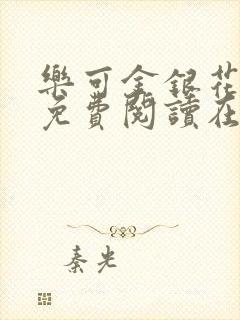 樂可金銀花
免費閱讀在
秦光